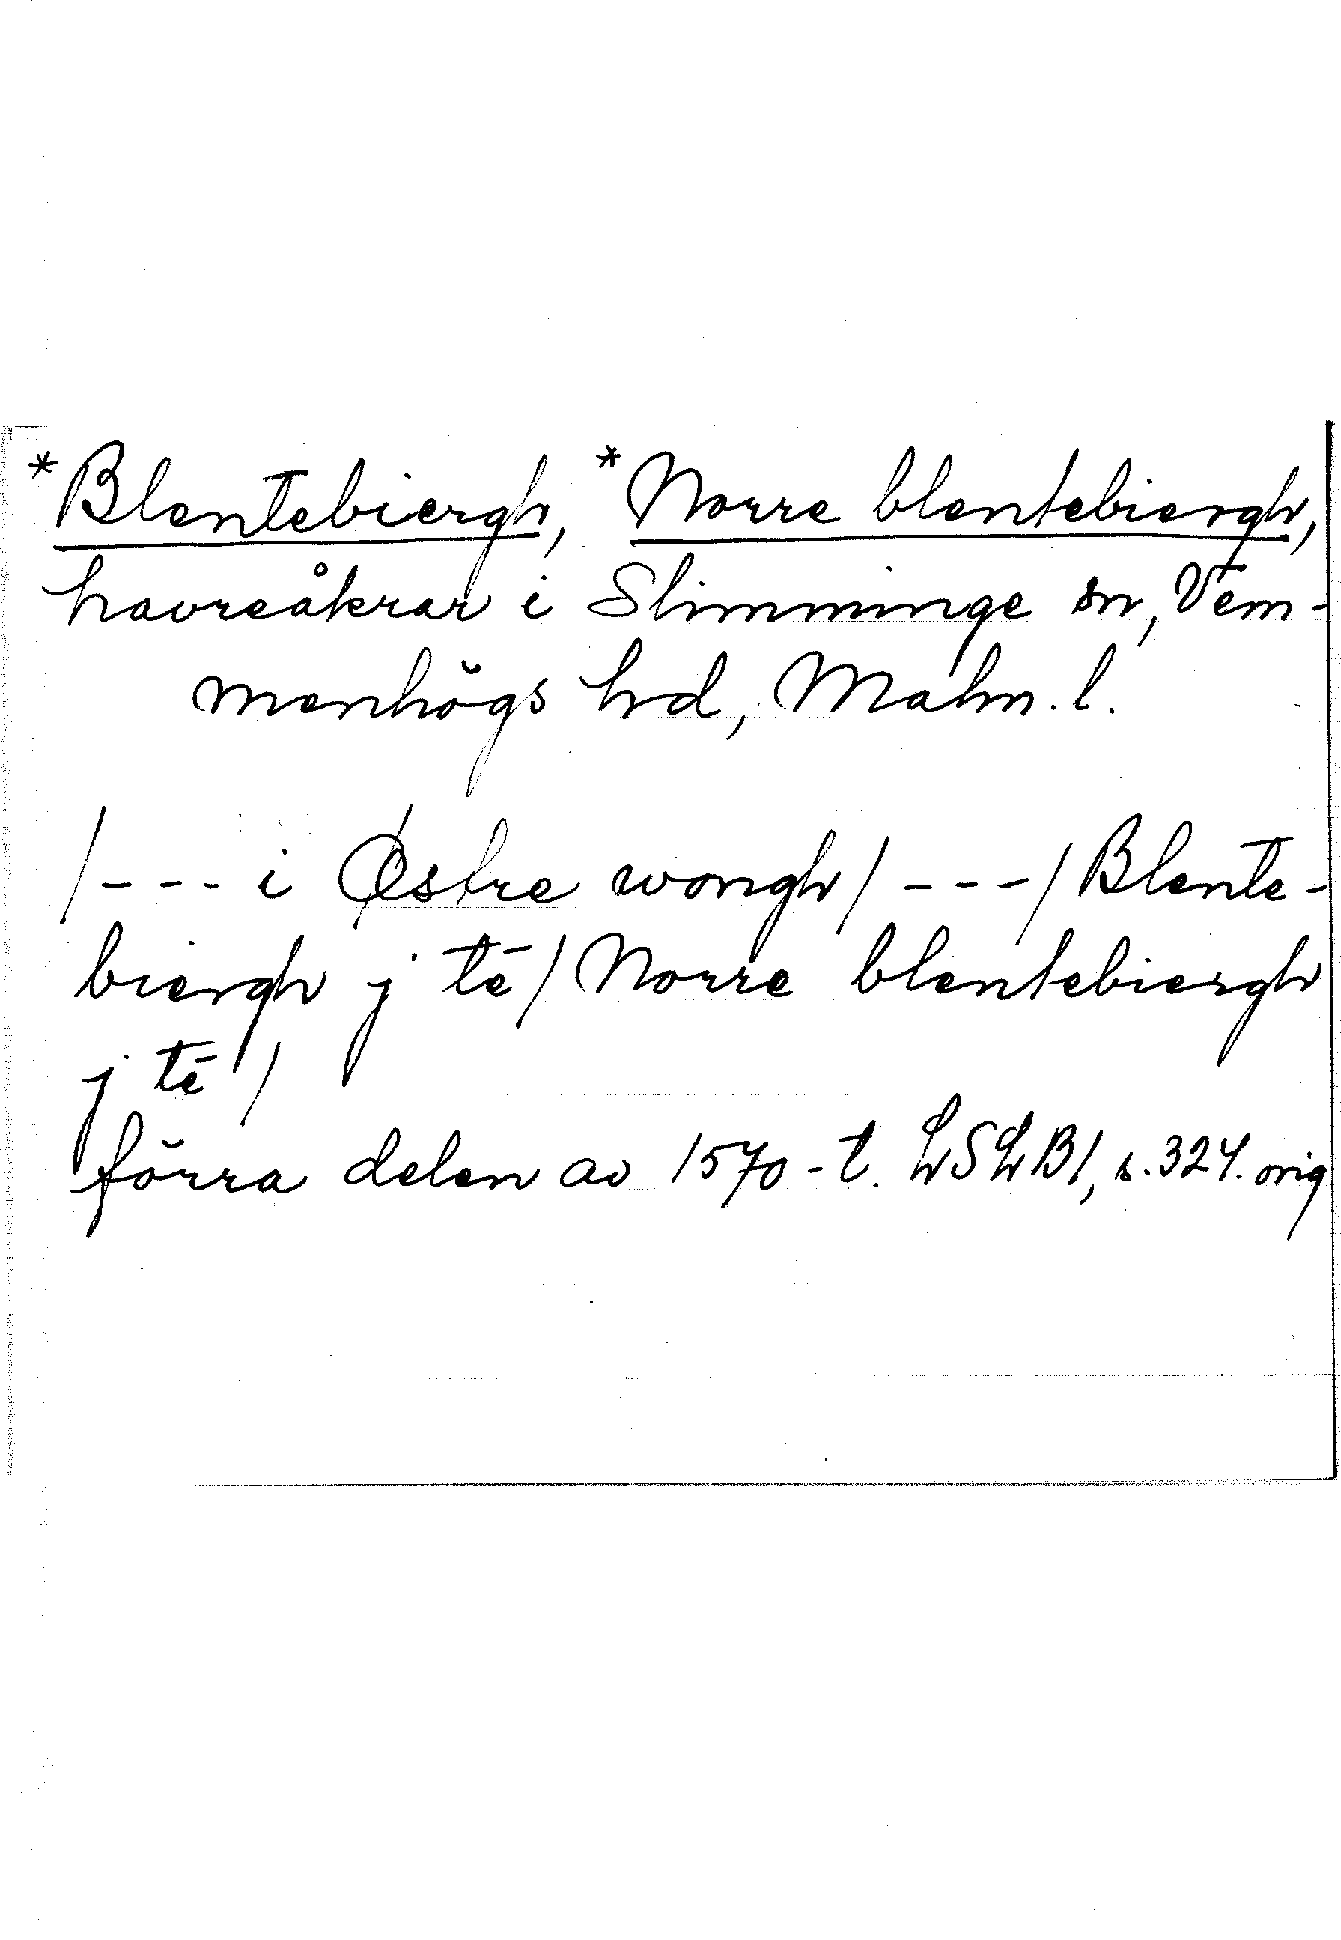 *Blentebiergh, *Norre blentebiergh,
havreåkrar i Slimminge sn, Vem-
menhögs hd, Malm. l.
/--- i Østre wongh/ ---/ Blente-
biergh j tē/ Norre blentebiergh
j tē /
förra delen av 1570-t. LSLB1, s. 324. orig